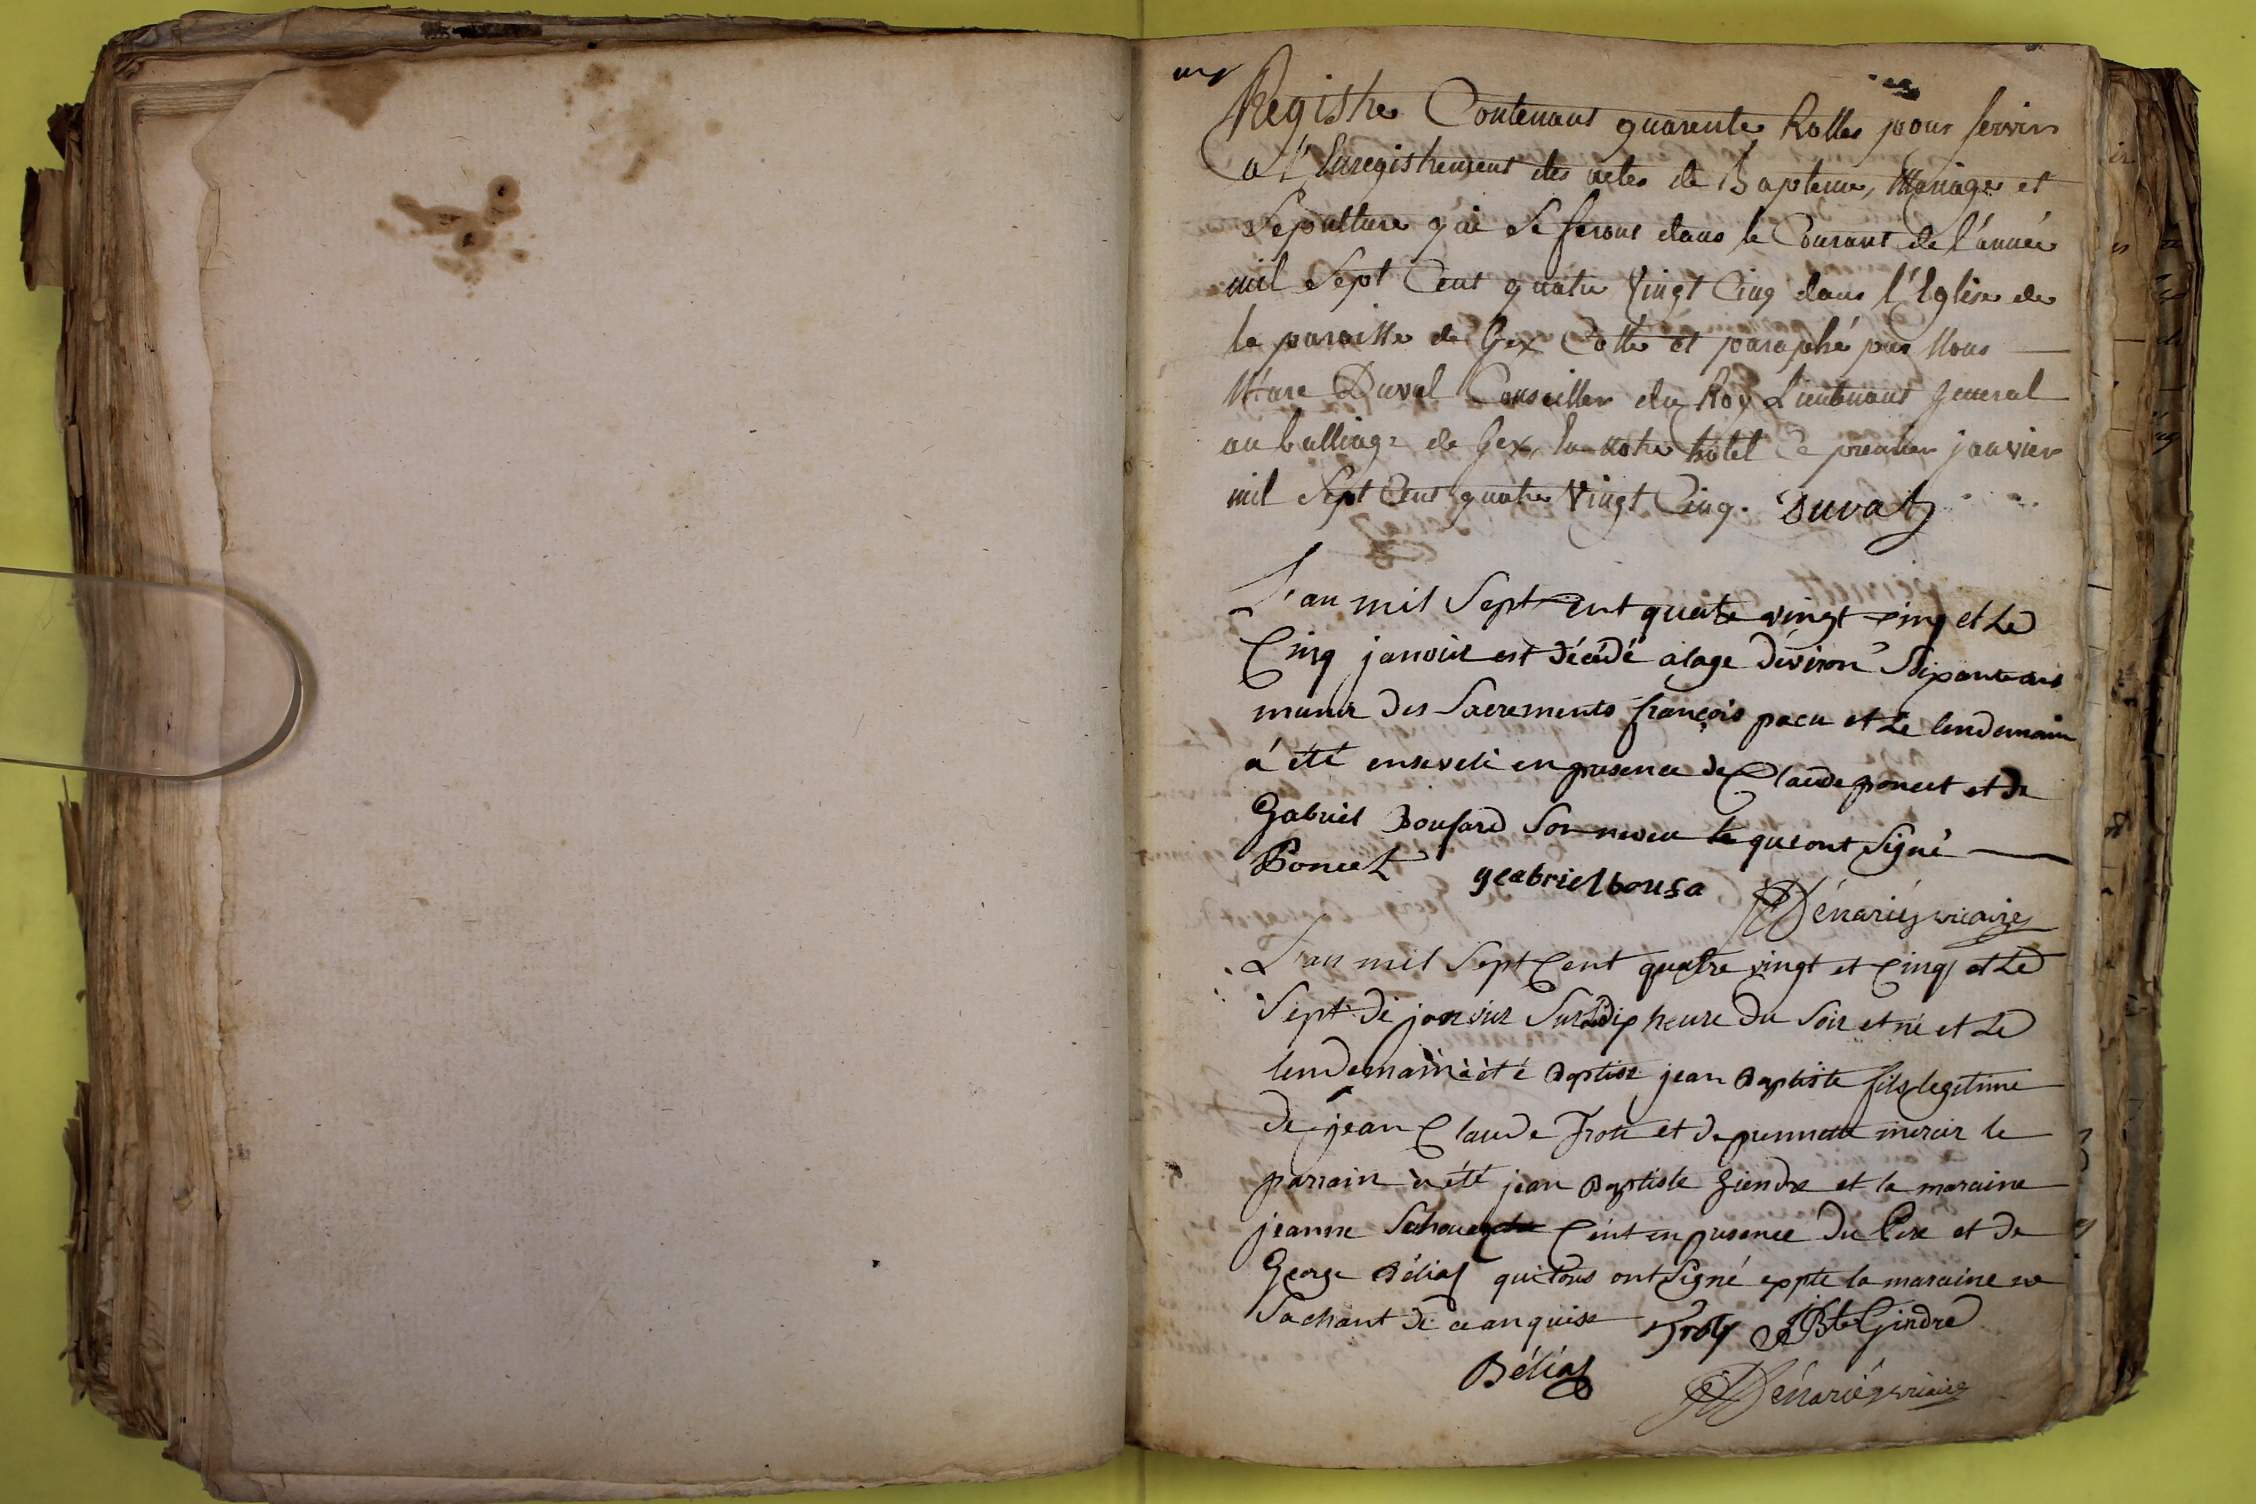 Registre Contenant quarente Rolles pour servir
a l'Enregistrement des actes de Bapteme, Mariage et
Sepulture qui se feront dans le Courant de l'année
mil Sept Cent quatre Vingt Cinq dans l'Eglise de
la paroisse de Gex Cotté et paraphé par Nous
Marc Duval Conseiller du Roy Lieutenant General
au balliage de Gex, En notre hôtel Ce premier janvier
mil Sept Cent quatre Vingt Cinq. Duval
L'an mil Sept Cent quatre vingt Cinq et Le
Cinq janvier est décédé a lage déviron Soixante ans
munir des Sacrements françois pacu et Le lendemain
á été enseveli en presence de Claude poncet et de
Gabriel Boufard Son neveu le qui ont Signé
Poncet geabriel bousa
Dénarié vicaire
L'an mil Sept Cent quatre vingt et Cinq et Le
Sept de janvier Sur Dix heure du Soir et né et Le
lendemain à été Baptisé jean Baptiste fils legitime
de jean Claude Troti et de pernette mercier le
parrain à été jean Baptiste Giendre et la maraine
jeanne C'eut en presence du Pere et de
George Béliaf qui tous ont Signé expté la maraine ne
Sachant de ce anquise Troty JBte Gindre
Béliaf
Dénarié vicaire